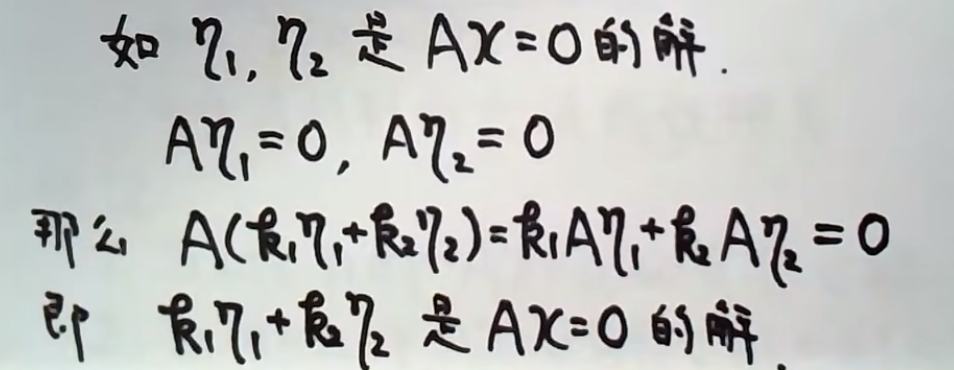 如 η₁, η₂ 是 Ax=0 的解.
Aη₁=0, Aη₂=0
那么 A(k₁η₁+k₂η₂)=k₁Aη₁+k₂Aη₂=0
即 k₁η₁+k₂η₂ 是 Ax=0 的解.